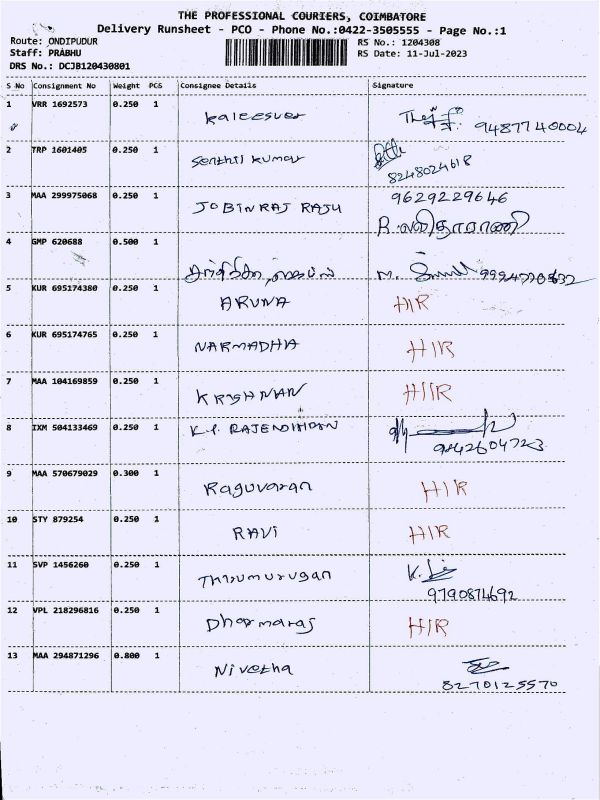 THE PROFESSIONAL COURIERS, COIMBATORE
Delivery Runsheet - PCO - Phone No.:0422-3505555 - Page No.:1
Route: ONDIPUDUR RS No.: 1204308
Staff: PRABHU RS Date: 11-Jul-2023
DRS No.: DCJB120430801
S No Consignment No Weight PCS Consignee Details Signature
1 VRR 1692573 0.250 1 Kaleesver 9487740004
2 TRP 1601405 0.250 1 Senthil Kumar
8248024618
3 MAA 299975068 0.250 1 JOBINRAJ RAJU 9629229646
4 GMP 620688 0.500 1
M.
5 KUR 695174380 0.250 1 ARUNA HIR
6 KUR 695174765 0.250 1 NARMADHA HIR
7 MAA 104169859 0.250 1 KRISHNAN HIR
8 IXM 504133469 0.250 1 RAJENDIRAN
9842604723
9 MAA 570679029 0.300 1 Raguvaran HIR
10 STY 879254 0.250 1 RAVi HIR
11 SVP 1456260 0.250 1 Thirumurugan K.
9790874692
12 VPL 218296816 0.250 1 Dharmaraj HIR
13 MAA 294871296 0.800 1 Nivetha
8270125570